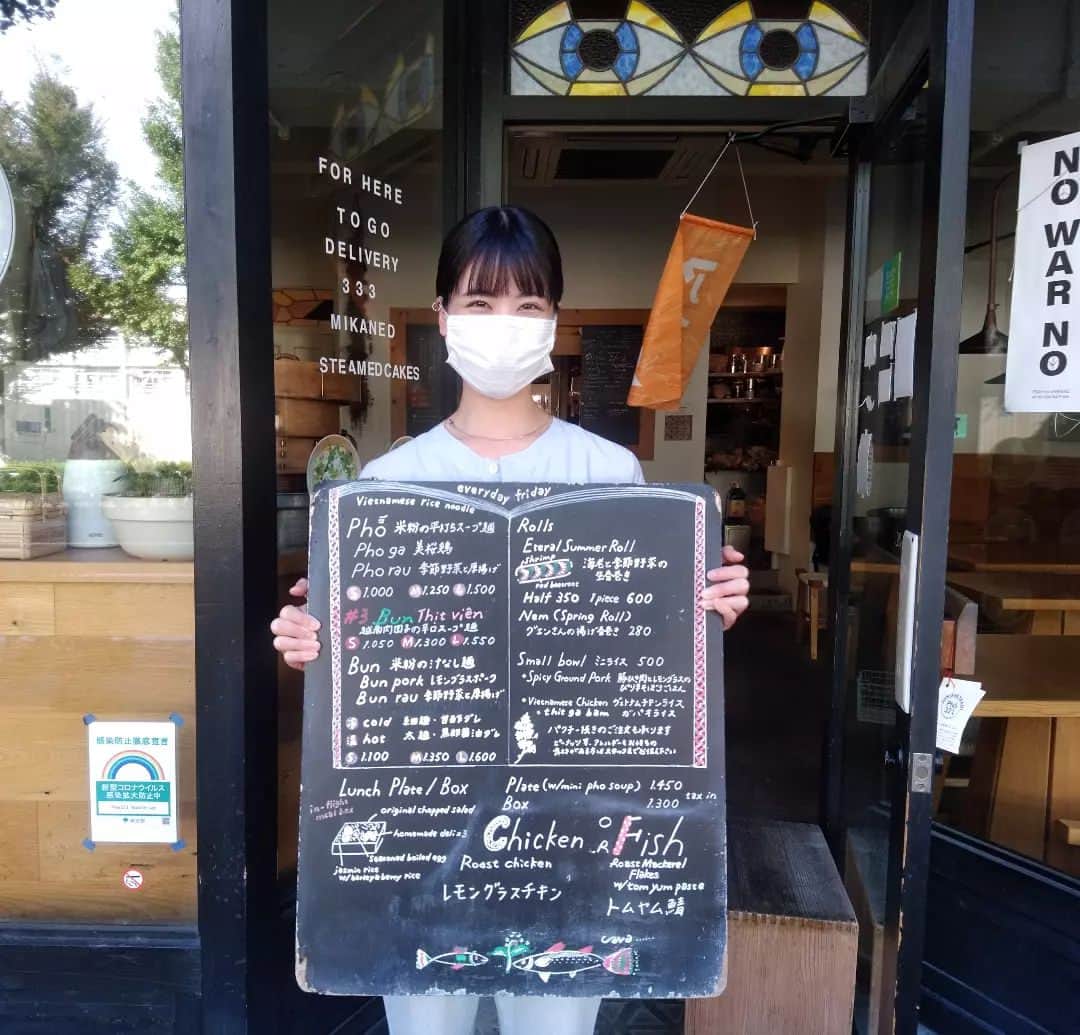 FOR HERE
TO GO
DELIVERY
333
MIKANED
STEAMED CAKES
NO WAR NO
everyday friday
Vietnamese rice noodle
Phở 米粉の平打ちスープ麺
Pho ga 美桜鶏
Pho rau 季節野菜と厚揚げ
S 1.000 M 1.250 L 1.500
#3 Bun Thit viên
越南肉団子の辛口スープ麺
S 1.050 M 1.300 L 1.550
Bun 米粉の汁なし麺
Bun pork レモングラスポーク
Bun rau 季節野菜と厚揚げ
冷 cold 細麺・甘酢ダレ
温 hot 太麺・黒胡椒醤油ダレ
S 1.100 M 1.350 L 1.600
Rolls
Eteral Summer Roll
shrimp
海老と季節野菜の
生春巻き
red beetroot
Half 350 1 piece 600
Nem (Spring Roll)
グエンさんの揚げ春巻き 280
Small bowl ミニライス 500
• Spicy Ground Pork 豚ひき肉とレモングラスの
ピリ辛そぼろごはん
• Vietnamese Chicken ヴェトナムチキンライス
• thit ga bam ガパオライス
パクチー抜きのご注文も承ります
Lunch Plate / Box
in-flight
meal box
original chopped salad
homemade deli×3
seasoned boiled egg
jasmin rice
w/ barley & berry rice
Plate (w/ mini pho soup) 1.450
Box 1.300
tax in
Chicken OR Fish
Roast chicken
レモングラスチキン
Roast Mackerel
Flakes
w/ tom yum paste
トムヤム鯖
cava
感染防止徹底宣言
新型コロナウイルス
感染拡大防止中